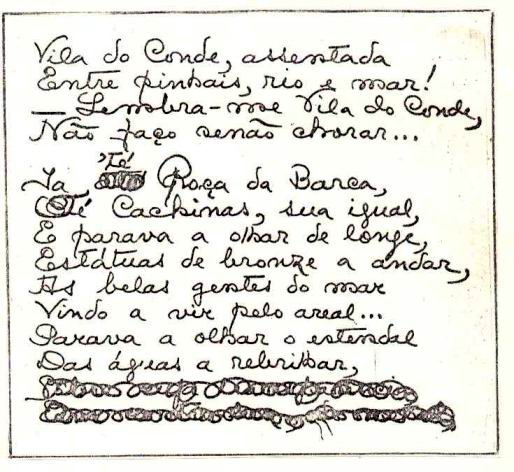 Vila do Conde, assentada
Entre pinhais, rio e mar!
— Lembra-me Vila do Conde,
Não faço senão chorar...
Ia 'Té Poça da Barca,
Té Caxinas, sua igual,
E parava a olhar de longe,
Estátuas de bronze a andar,
As belas gentes do mar
Vindo a vir pelo areal...
Parava a olhar o estendal
Das águas a rebrilhar,